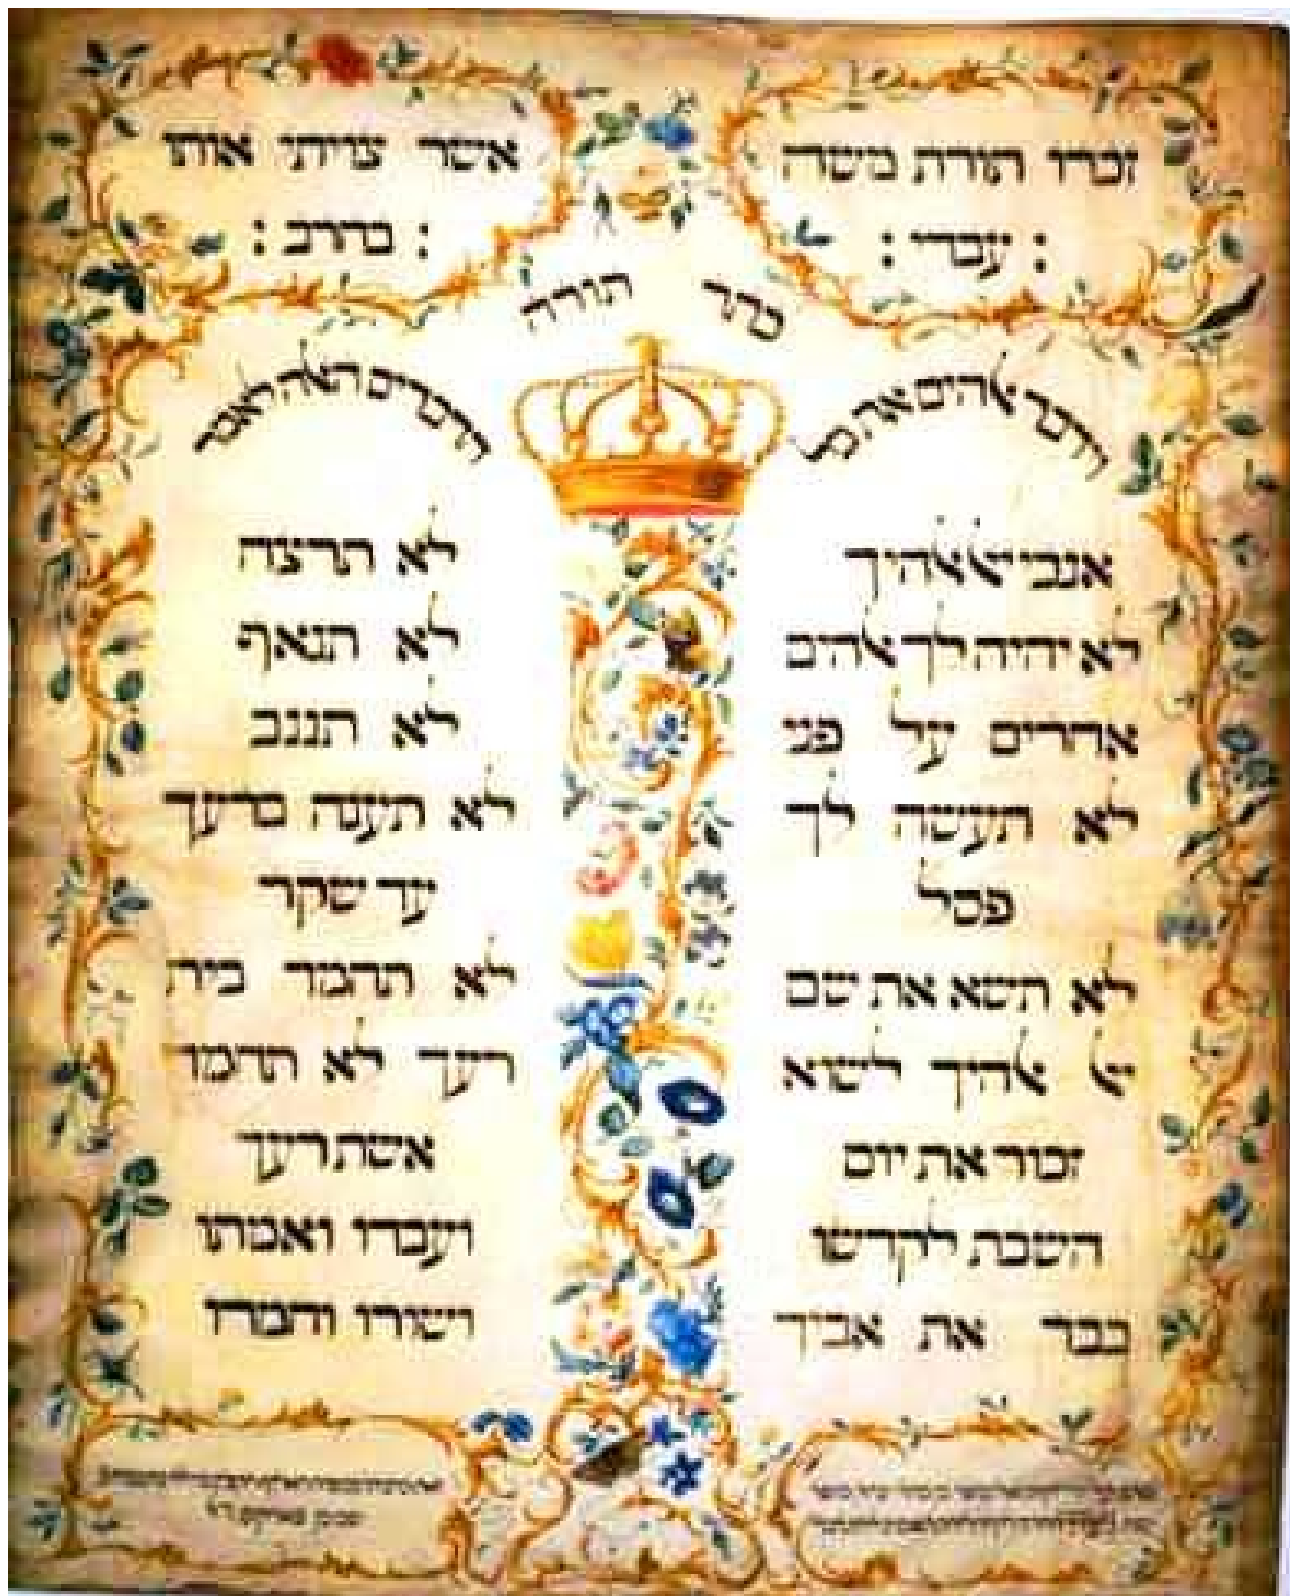 זכרו תורת משה
: עבדי :
אשר צויתי אותו
: בחרב :
כתר תורה
וידבר ﭏהים את כל
הדברים האלה לאמר
אנכי יﭏ ﭏהיך
לא יהיה לך ﭏהים
אחרים על פני
לא תעשה לך
פסל
לא תשא את שם
יﭏ ﭏהיך לשוא
זכור את יום
השבת לקדשו
כבד את אביך
לא תרצח
לא תנאף
לא תגנב
לא תענה ברעך
עד שקר
לא תחמד בית
רעך לא תחמד
אשת רעך
ועבדו ואמתו
ושורו וחמרו